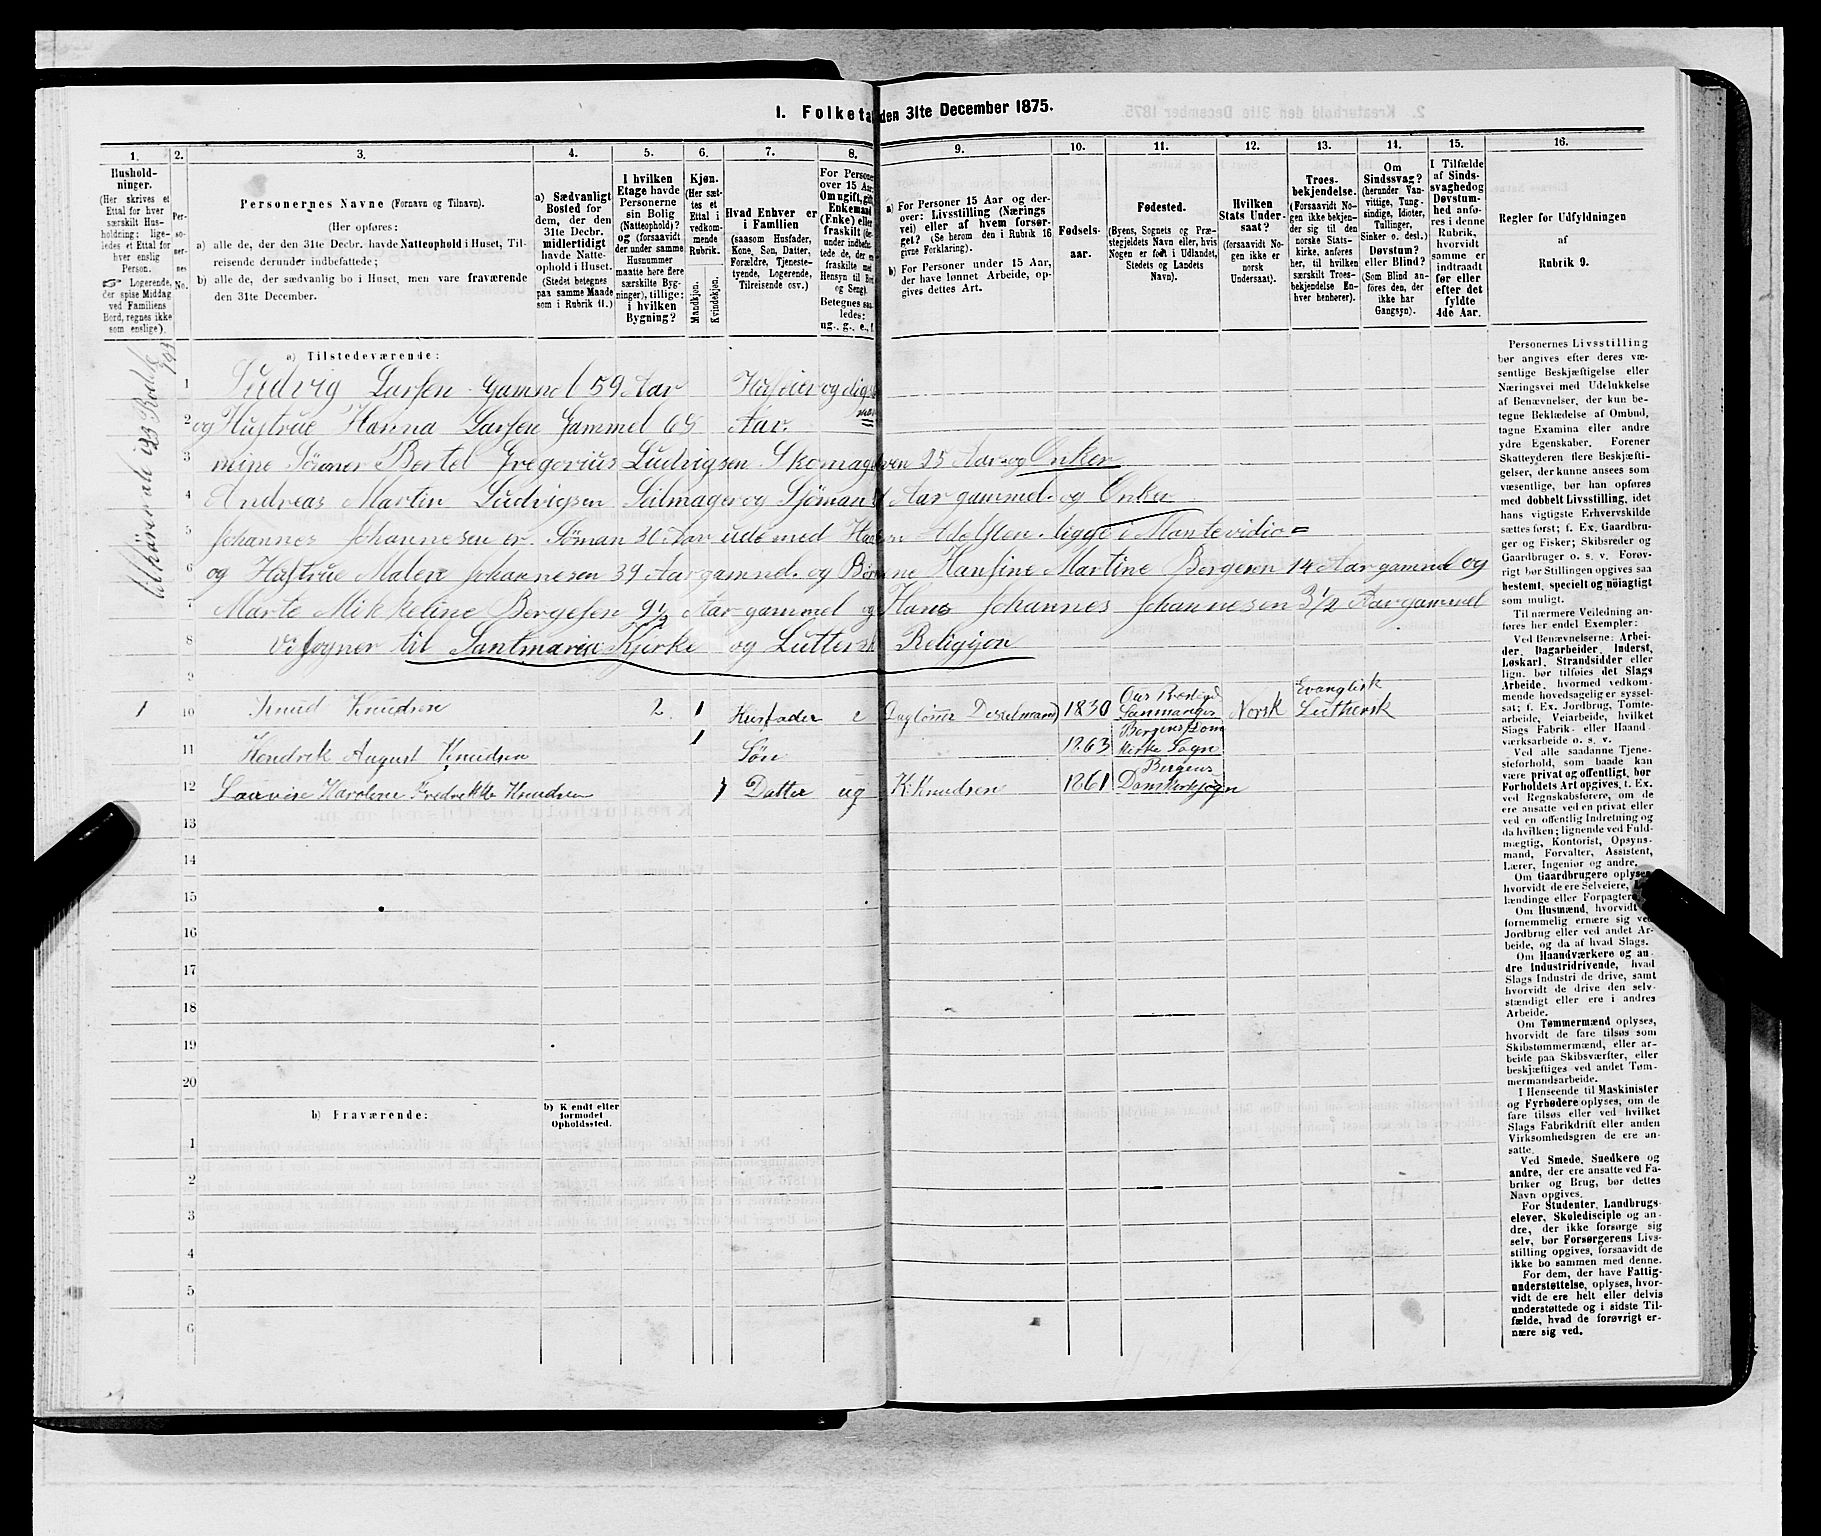 1. Folketa den 31te December 1875.
1.
2.
3.
4.
5.
6.
7.
8.
9.
10.
11.
12.
13.
14.
15.
16.
Hushold-
ninger.
(Her skrives et
Ettal for hver
særskilt Hus-
holdning: lige-
ledes et Ettal for
hver enslig
Person.
☞ Logerende,
der spise Middag
ved Familiens
Bord, regnes ikke
som enslige).
Per-
so-
ner-
nes
No.
Personernes Navne (Fornavn og Tilnavn).
(Her opføres:
a) alle de, der den 31te Decbr. havde Natteophold i Huset, Til-
reisende derunder indbefattede;
b) alle de, der sædvanlig bo i Huset, men vare fraværende
den 31te December.
a) Sædvanligt
Bosted for
dem, der den
31te Decbr.
midlertidigt
havde Natte-
ophold i Huset.
(Stedet betegnes
paa samme Maade
som i Rubrik 11.)
I hvilken
Etage havde
Personerne
sin Bolig
(Natteophold)?
og (forsaavidt
der under samme
Husnummer
maatte høre flere
særskilte Byg-
ninger), tillige:
i hvilken
Bygning?
Kjøn.
(Her sæt-
tes et
Ettal i
vedkom-
mende
Rubrik.
Mandkjøn.
Kvindekjøn.
Hvad Enhver er
i Familien
(saasom Husfader,
Kone, Søn, Datter,
Forældre, Tjeneste-
tyende, Logerende,
Tilreisende osv.)
For Persone
over 15 Aar
Om ugift, gift,
Enkemand
(Enke) eller
fraskilt (de-
runder indbefat-
tede de, der ere
fraskilte med
Hensyn til Bord
og Seng).
Betegnes saa-
ledes:
ug., g., e., f.
a) For Personer 15 Aar og der-
over: Livsstilling (Nærings
vei) eller af hvem forsør-
get? (Se herom den i Rubrik 16
givne Forklaring).
b) For Personer under 15 Aar,
der have lønnet Arbeide, op-
gives dettes Art.
Fødsels-
aar.
Fødested.
(Byens, Sognets og Præ-
stegjeldets Navn eller, hvis
Nogen er født i Udlandet,
Stedets og Landets
Navn).
Hvilken
Stats Under-
saat?
(forsaavidt No-
gen ikke er
norsk
Undersaat).
Troes-
bekjendelse.
(Forsaavidt No-
gen ikke bekjen-
der sig til den
norske Stats-
kirke, anføres
her, til hvilken
særskilt Troes-
bekjendelse En-
hver henhører).
Om
Sindssvag?
(herunder Van-
vittige, Tung-
sindige, Idioter,
Tullinger,
Sinker o. desl.)
Døvstum?
eller Blind?
(Som Blind an-
føres den, der
ikke har
Gangsyn).
I Tilfælde
af Sinds-
svaghedog
Døvstum-
hed anfø-
res i denne
Rubrik,
hvorvidt
samme er
indtraadt
før eller
efter det
fyldte
4de Aar.
Regler for Udfyldningen
af
Rubrik 9.
a) Tilstedeværende:
1 Ludvig Larsen Gammel 59 Aar Huseier og
2 og Hustrue Hanna Larsen Gammel 65 Aar.
3 mine Sønner Bertel Gregorius Ludvigsen Skomager 25 Aar og Onker
4 Andreas Martin Ludvigsen Seilmager og Sjøman Aar gammel. og Onker
5 Johannes Johannesen er Søman 36 Aar ude med Adelsten ligge i Montevidio
6 og Hustrue Malen Johannesen 39 Aar gamel. og Børnene Hansine Martine Bergesen 14 Aar gamel og
7 Marte Mikkeline Bergesen 9 1/2 Aar gammel og Hans Johannes Johannesen 3 1/2 Aar gammel
8 vi sogner til Santmarie Kjerke og Luttersk Religjon
9
1 10 Knud Knudsen 2. 1 Husfader e Dagløner 1830 Norsk Evanglisk Luthersk
11 Hendrik August Knudsen 1 Søn 1863 Bergens Dom Kirke Sogn
12 Lauvise Karolene Fredrekke Knudsen 1 Datter ug K. Knudsen 1861 Bergens Domkirkesogn
13
14
15
16
17
18
19
20
b) Fraværende:
b) Kjendt eller
formodet
Opholdssted.
1
2
3
4
5
6
Personernes Livsstilling
bør angives efter deres væ-
sentlige Beskjæftigelse eller
Næringsvei med Udelukkelse
af Benævnelser, der kun be-
tegne Beklædelse af Ombud,
tagne Examina eller andre
ydre Egenskaber. Forener
Skatteyderen flere Beskjæfti-
gelser, der kunne ansees som
væsentlige, bør han opføres
med dobbelt Livsstilling, idet
hans vigtigste Erhvervskilde
sættes først; f. Ex. Gaardbru-
ger og Fisker; Skibsreder og
Gaardbruger o. s. v. Forøv-
rigt bør Stillingen opgives saa
bestemt, specielt og nöiagtigt
som muligt.
Til nærmere Veiledning an-
føres her endel Exempler:
Ved Benævnelserne: Arbei-
der, Dagarbeider, Inderst,
Løskarl, Strandsidder eller
lign. bør tilføies det Slags
Arbeide, hvormed vedkom-
mende hovedsagelig er syssel-
sat; f. Ex. Jordbrug, Tomte-
arbeide, Veiarbeide, hvilket
Slags Fabrik- eller Haand
værksarbeide o. s. v.
Ved alle saadanne Tjene-
steforhold, som baade kan
være privat og offentligt, bør
Forholdets Art opgives, t. Ex.
ved Regnskabsførere, om de
ere ansatte ved en privat eller
ved en offentlig Indretning og
da hvilken; lignende ved Fuld-
mægtig, Kontorist, Opsyns-
mand, Forvalter, Assistent,
Lærer, Ingeniør og andre.
Om Gaardbrugere oplyses,
hvorvidt de ere Selveiere,
lændinge eller Forpagtere
Om Husmænd, hvorvidt
fornemmelig ernære sig ved
Jordbrug eller ved andet Ar-
beide, og da af hvad Slags.
Om Haandværkere og an-
dre Industridrivende, hvad
Slags Industri de drive, samt
hvorvidt de drive den selv-
stændigt eller ere i andres
Arbeide.
Om Tømmermænd oplyses,
hvorvidt de fare tilsøs som
Skibstømmermænd, eller ar-
beide paa Skibsværfter, eller
beskjæftiges ved andet Tøm-
mermandsarbeide.
I Henseende til Maskinister
og Fyrbødere oplyses, om de
fare tilsøs eller ved hvilket
Slags Fabrikdrift eller anden
Virksomhedsgren de ere an-
satte.
Ved Smede, Snedkere og
andre, der ere ansatte ved Fa-
briker og Brug, bør dettes
Navn opgives.
For Studenter, Landbrugs-
elever, Skoledisciple og an-
dre, der ikke forsørge sig
selv, bør Forsørgerens Livs-
stilling opgives, forsaavidt de
ikke bo sammen med denne.
For dem, der have Fattig-
understøttelse, oplyses, hvor-
vidt de ere helt eller delvis
understøttede og i sidste Til-
fælde, hvad de forøvrigt er-
nære sig ved.